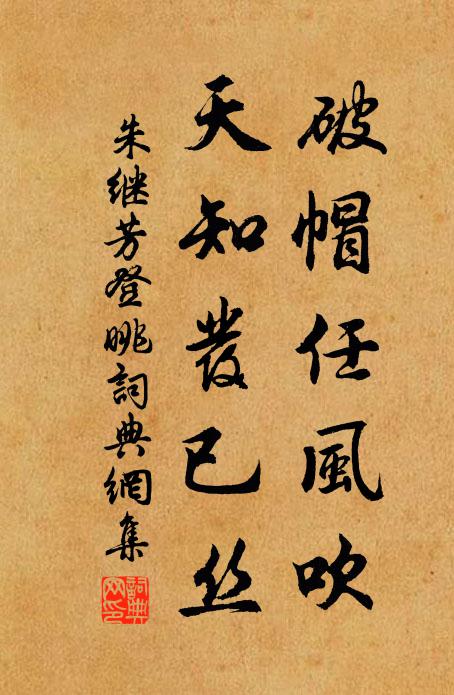 破帽任風吹
天知發已丝
朱继芳登眺詞典網集
詞典網印